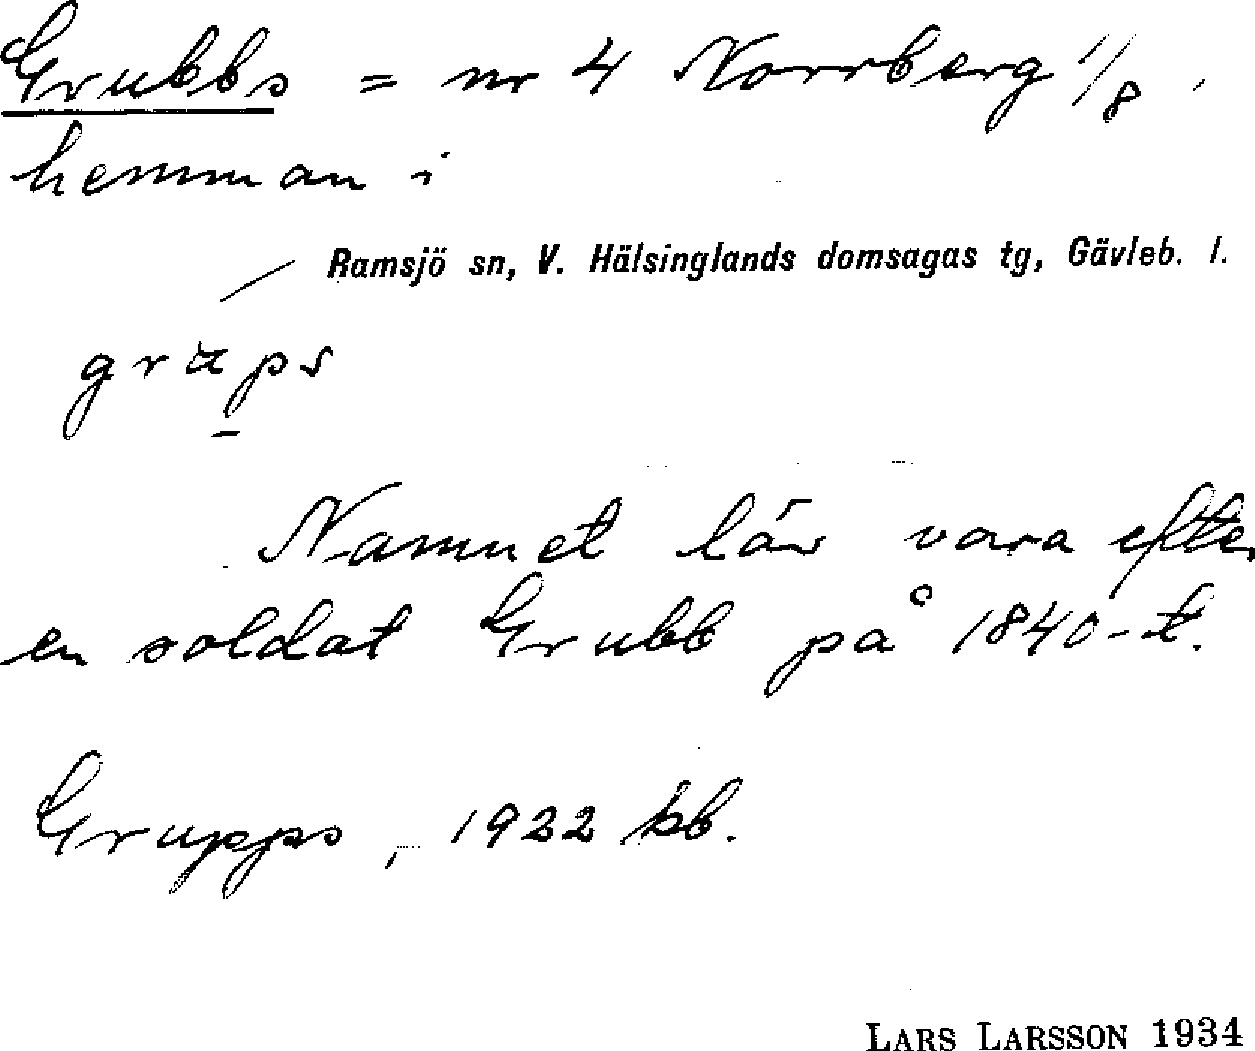 Grubbs = nr 4 Norrberg 1/8
hemman i
Ramsjö sn, V. Hälsinglands domsagas tg, Gävleb. l.
Namnet lär vara efter
en soldat Grubb på 1840-t.
Grupps, 1922 kb.
LARS LARSSON 1934